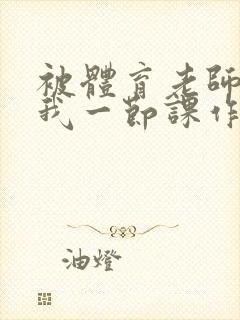 被體育老師
我一節課作
油燈